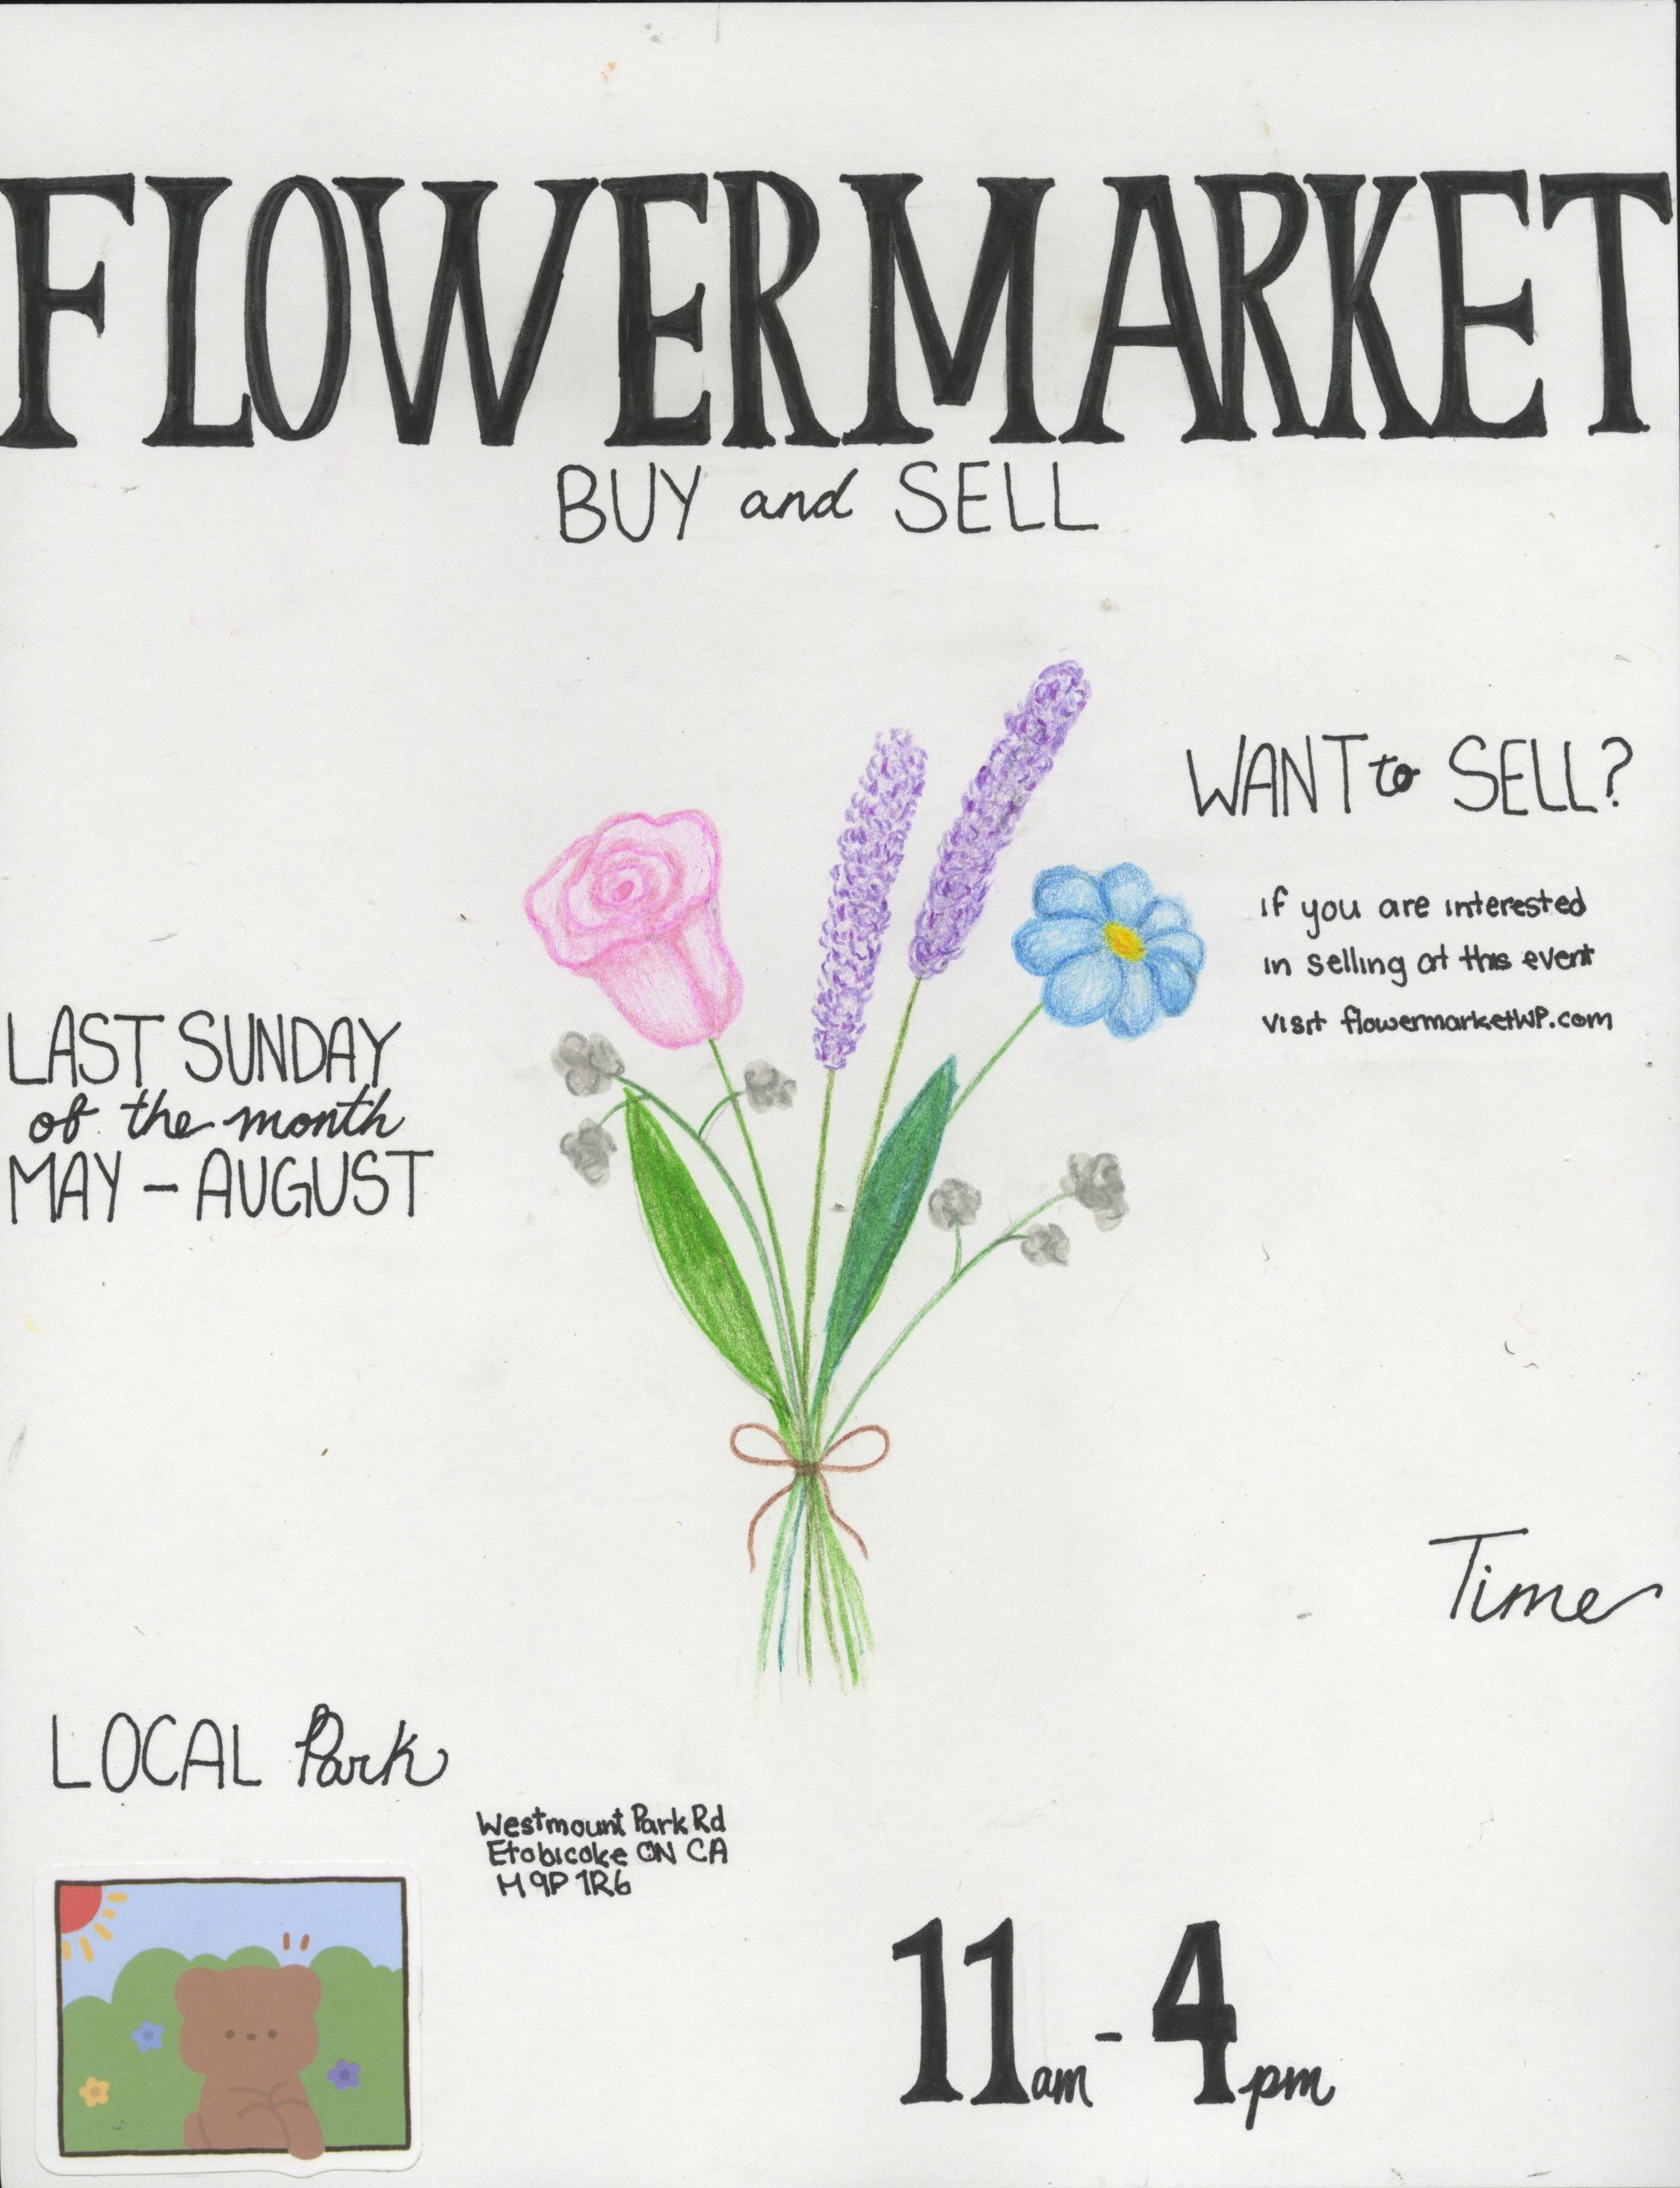 FLOWERMARKET
BUY and SELL
WANT to SELL?
if you are interested
in selling at this event
visit flowermarketWP.com
LAST SUNDAY
of the month
MAY - AUGUST
Time
LOCAL Park
Westmount Park Rd
Etobicoke ON CA
M9P 1R6
11am - 4pm